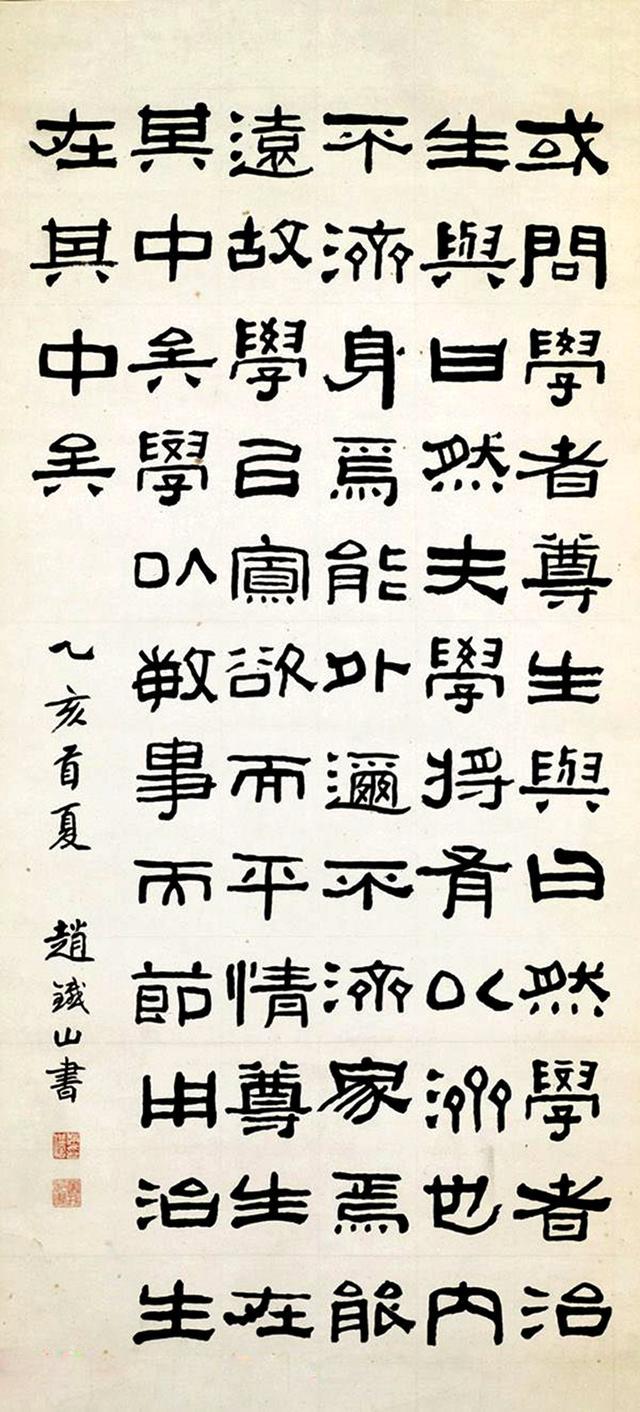 或問學者尊生與曰然學者治
生與曰然夫學將有以濟也内
不濟身焉能外邇不濟家焉能
遠故學以寡欲而平情尊生在
其中矣學以敏事而節用治生
在其中矣
乙亥首夏 趙鐵山書